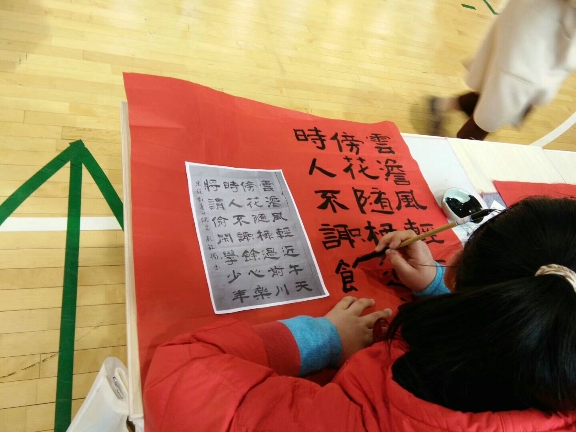 雲澹風輕
傍花随柳
時人不識
雲澹風輕近午天
傍花随柳過前川
時人不識餘心樂
將謂偷閒學少年